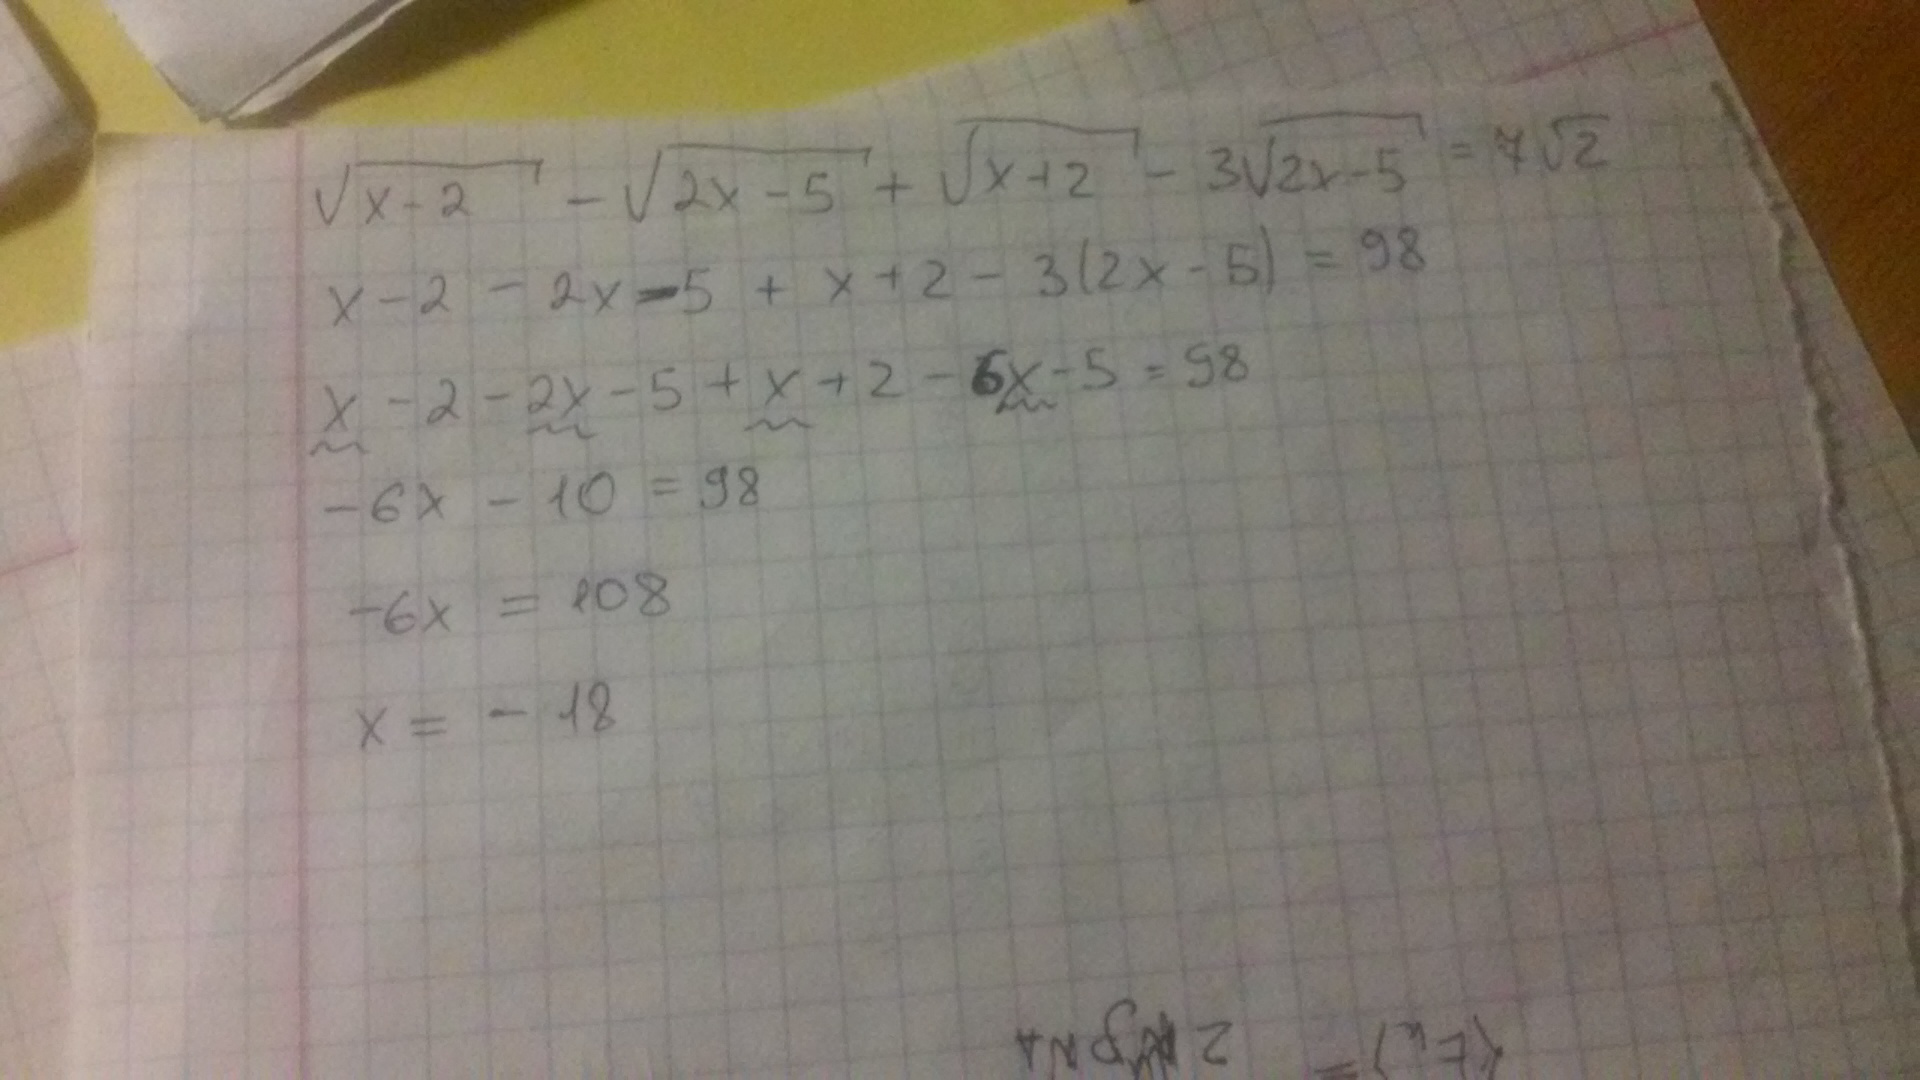 √x-2 - √2x-5 + √x+2 - 3√2x-5 = 7√2
x-2 - 2x-5 + x+2 - 3(2x-5) = 98
x-2-2x-5+x+2-6x-5=98
-6x - 10 = 98
-6x = 108
x = - 18